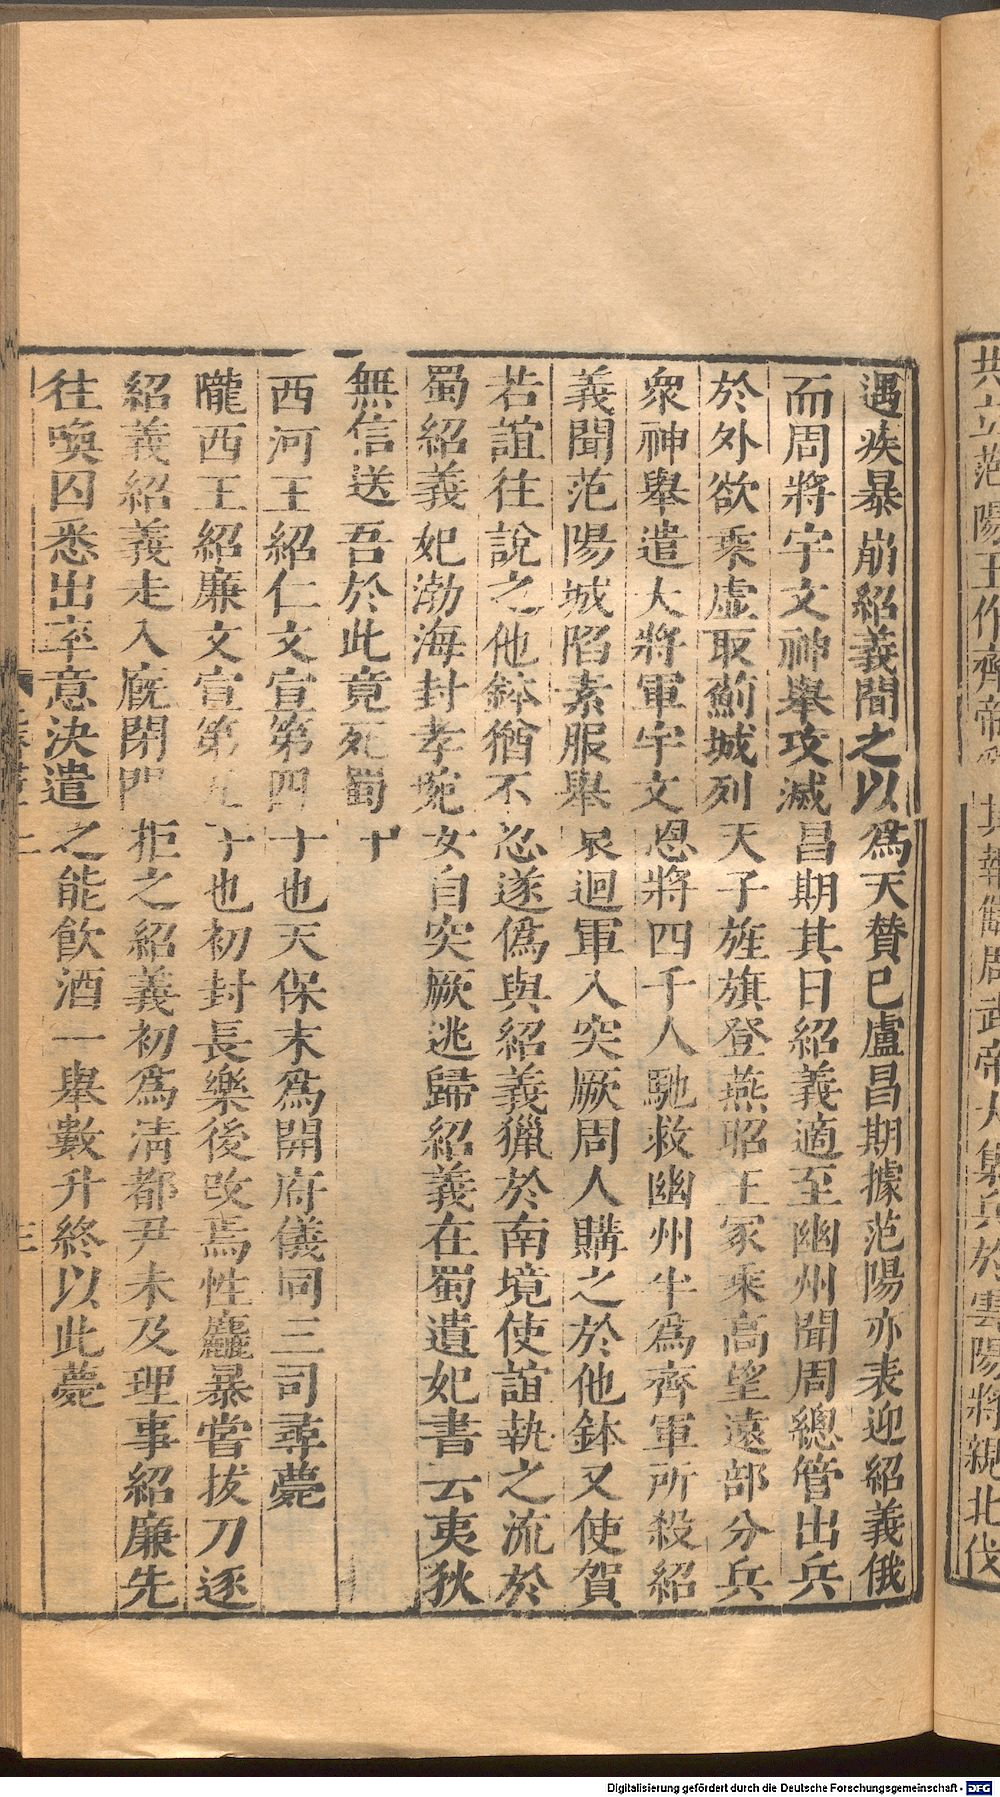 共立范陽王作齊帝
其報讎周武帝大集兵於雲陽將親北伐
遇疾暴崩紹義聞之以爲天贊已盧昌期據范陽亦表迎紹義俄
而周將宇文神舉攻滅昌期其日紹義適至幽州聞周總管出兵
於外欲乘虛取薊城列天子旌旗登燕昭王冢乘高望遠部分兵
衆神舉遣大將軍宇文恩將四千人馳救幽州半爲齊軍所殺紹
義聞范陽城陷素服舉哀迴軍入突厥周人購之於他鉢又使賀
若誼往說之他鉢猶不忍遂僞與紹義獵於南境使誼執之流於
蜀紹義妃渤海封孝琬女自突厥逃歸紹義在蜀遺妃書云夷狄
無信送吾於此竟死蜀中
西河王紹仁文宣第四子也天保末爲開府儀同三司尋薨
隴西王紹廉文宣第五子也初封長樂後改焉性麤暴嘗拔刀逐
紹義紹義走入廄閉門拒之紹義初爲清都尹未及理事紹廉先
往喚囚悉出率意決遣之能飲酒一舉數升終以此薨
三
Digitalisierung gefördert durch die Deutsche Forschungsgemeinschaft - DFG